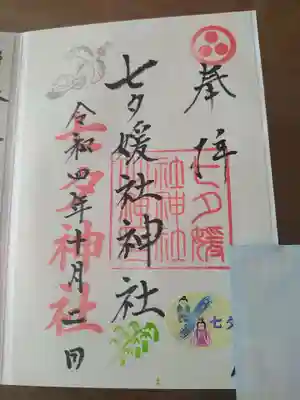 奉拝
七夕媛社神社
七夕神社
令和四年十月二日
七夕